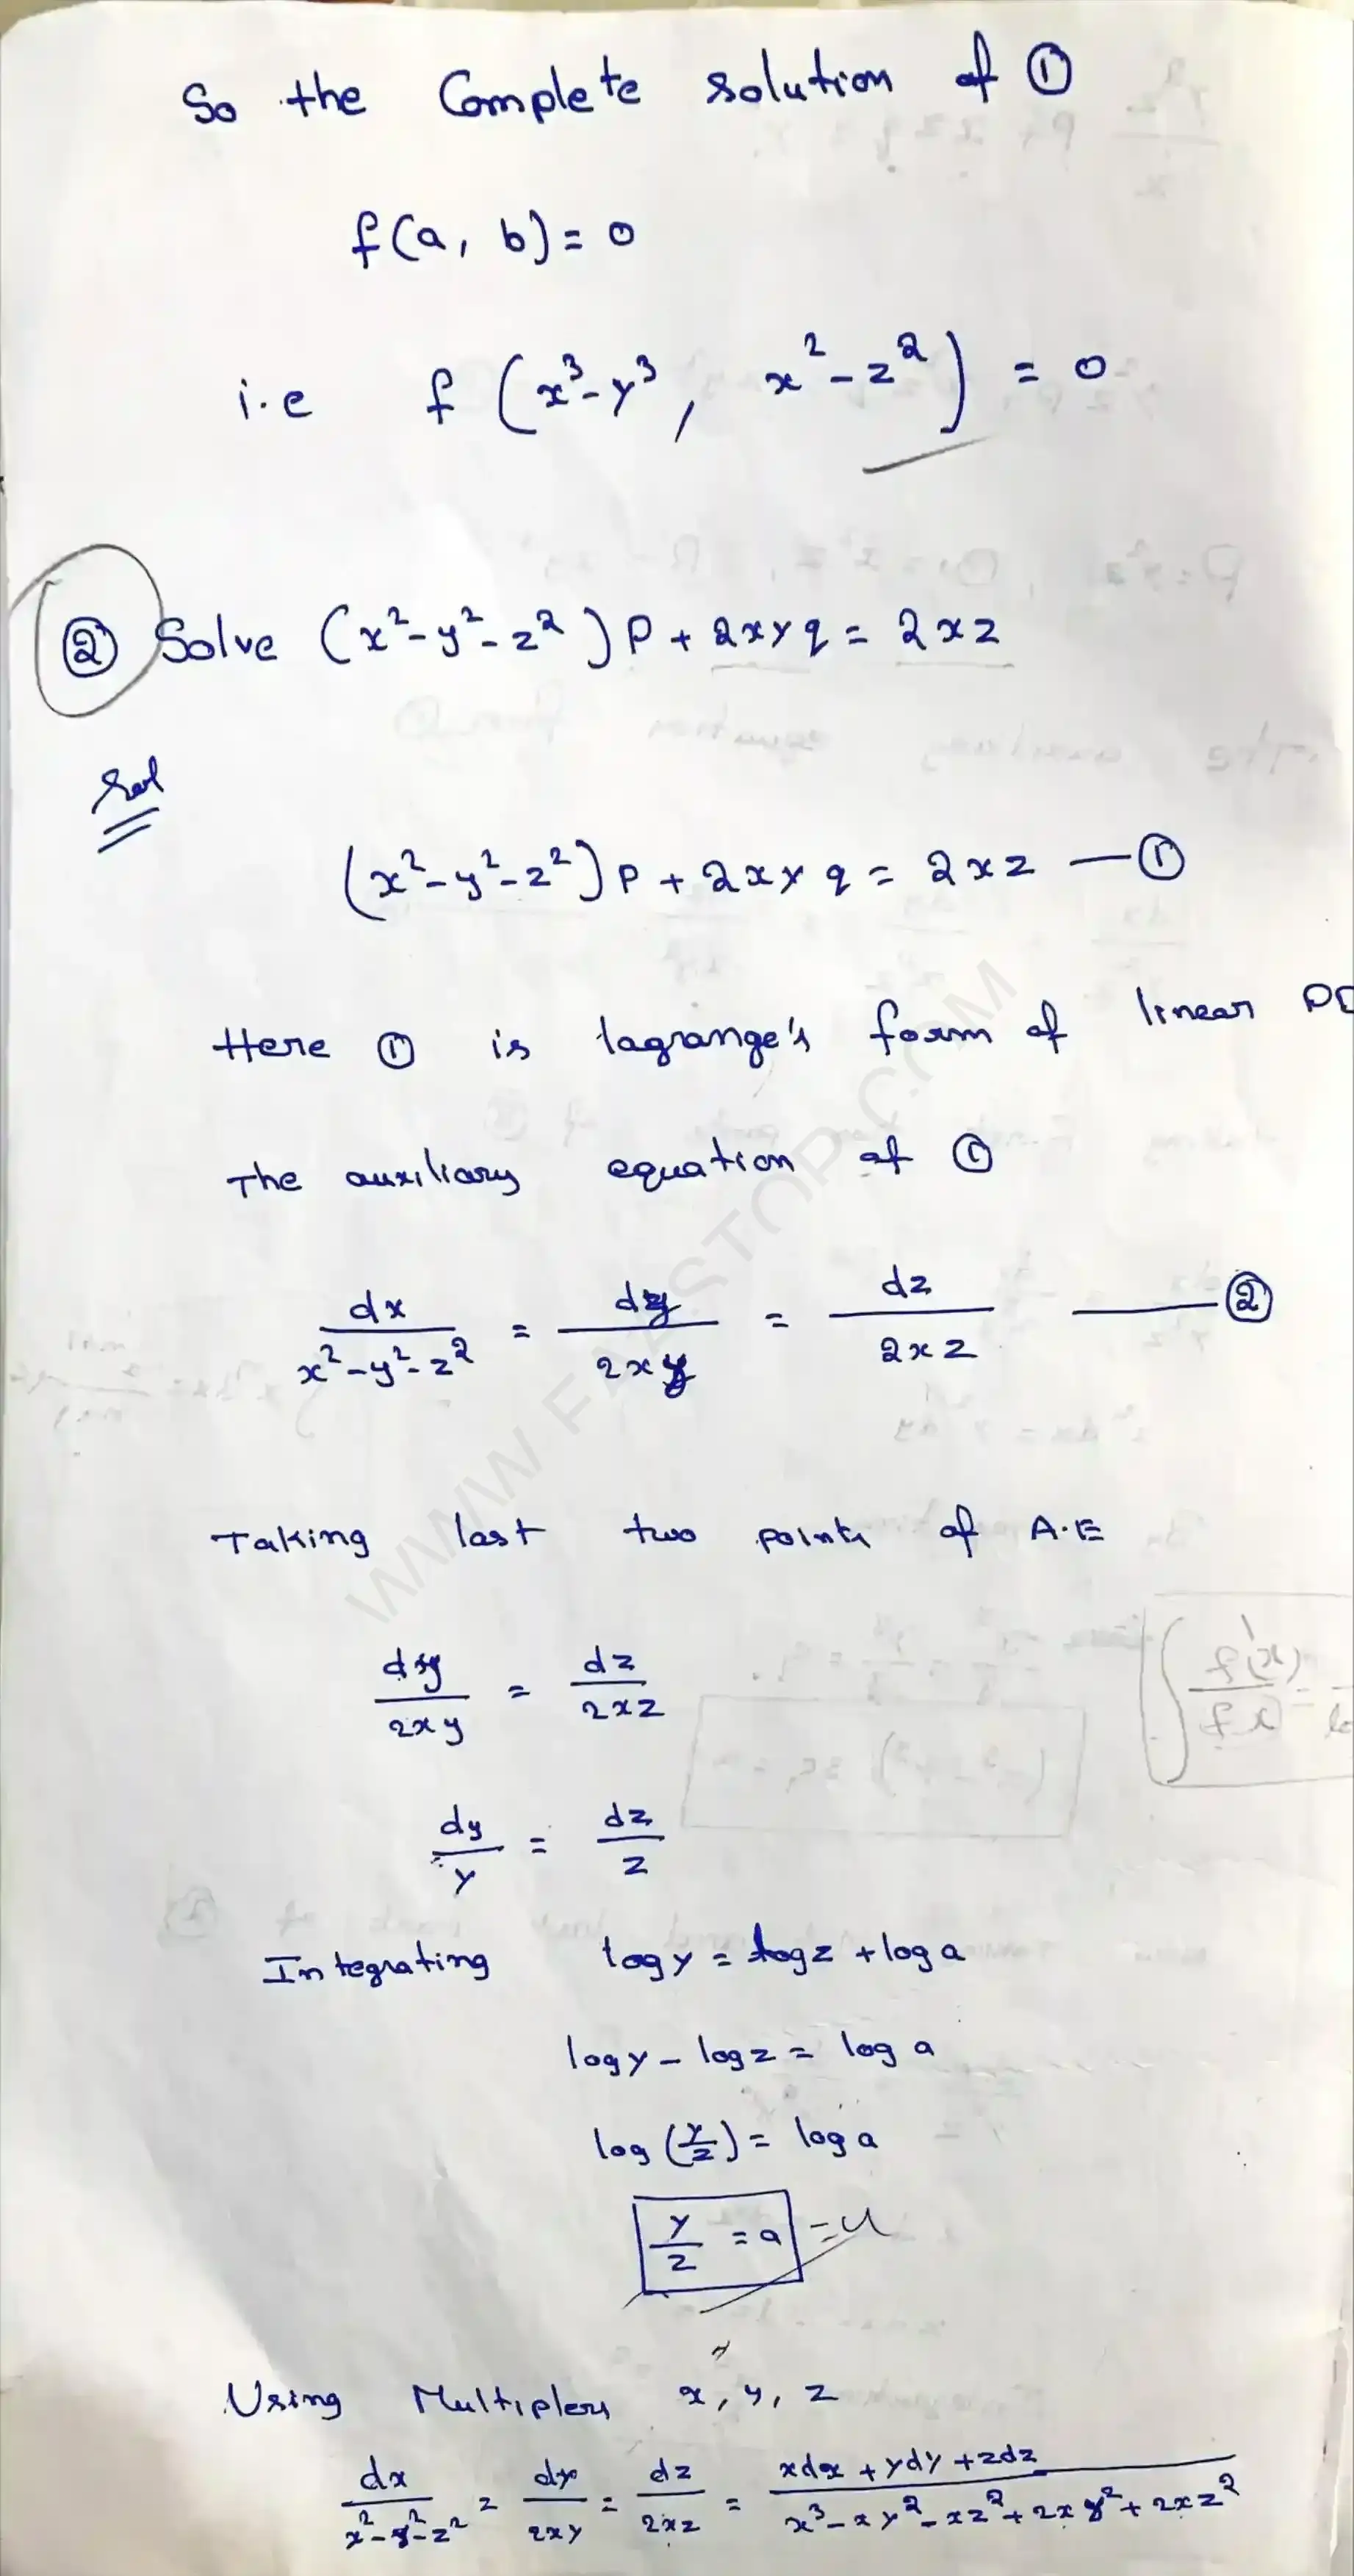 So the Complete solution of ①
f(a, b) = 0
i.e f (x³-y³, x²-z²) = 0
② Solve (x²-y²-z²)p + 2xyq = 2xz
Sol
(x²-y²-z²)p + 2xyq = 2xz — ①
Here ① is lagrange's form of linear
The auxiliary equation of ①
dx/(x²-y²-z²) = dy/2xy = dz/2xz — ②
Taking last two points of A.E
dy/2xy = dz/2xz
dy/y = dz/z
Integrating log y = log z + log a
log y - log z = log a
log (y/z) = log a
y/z = a = u
Using Multiplers x, y, z
dx/(x²-y²-z²) = dy/2xy = dz/2xz = (xdx + ydy + zdz)/(x³-xy²-xz²+2xy²+2xz²)
WWW.FAASTOP.COM